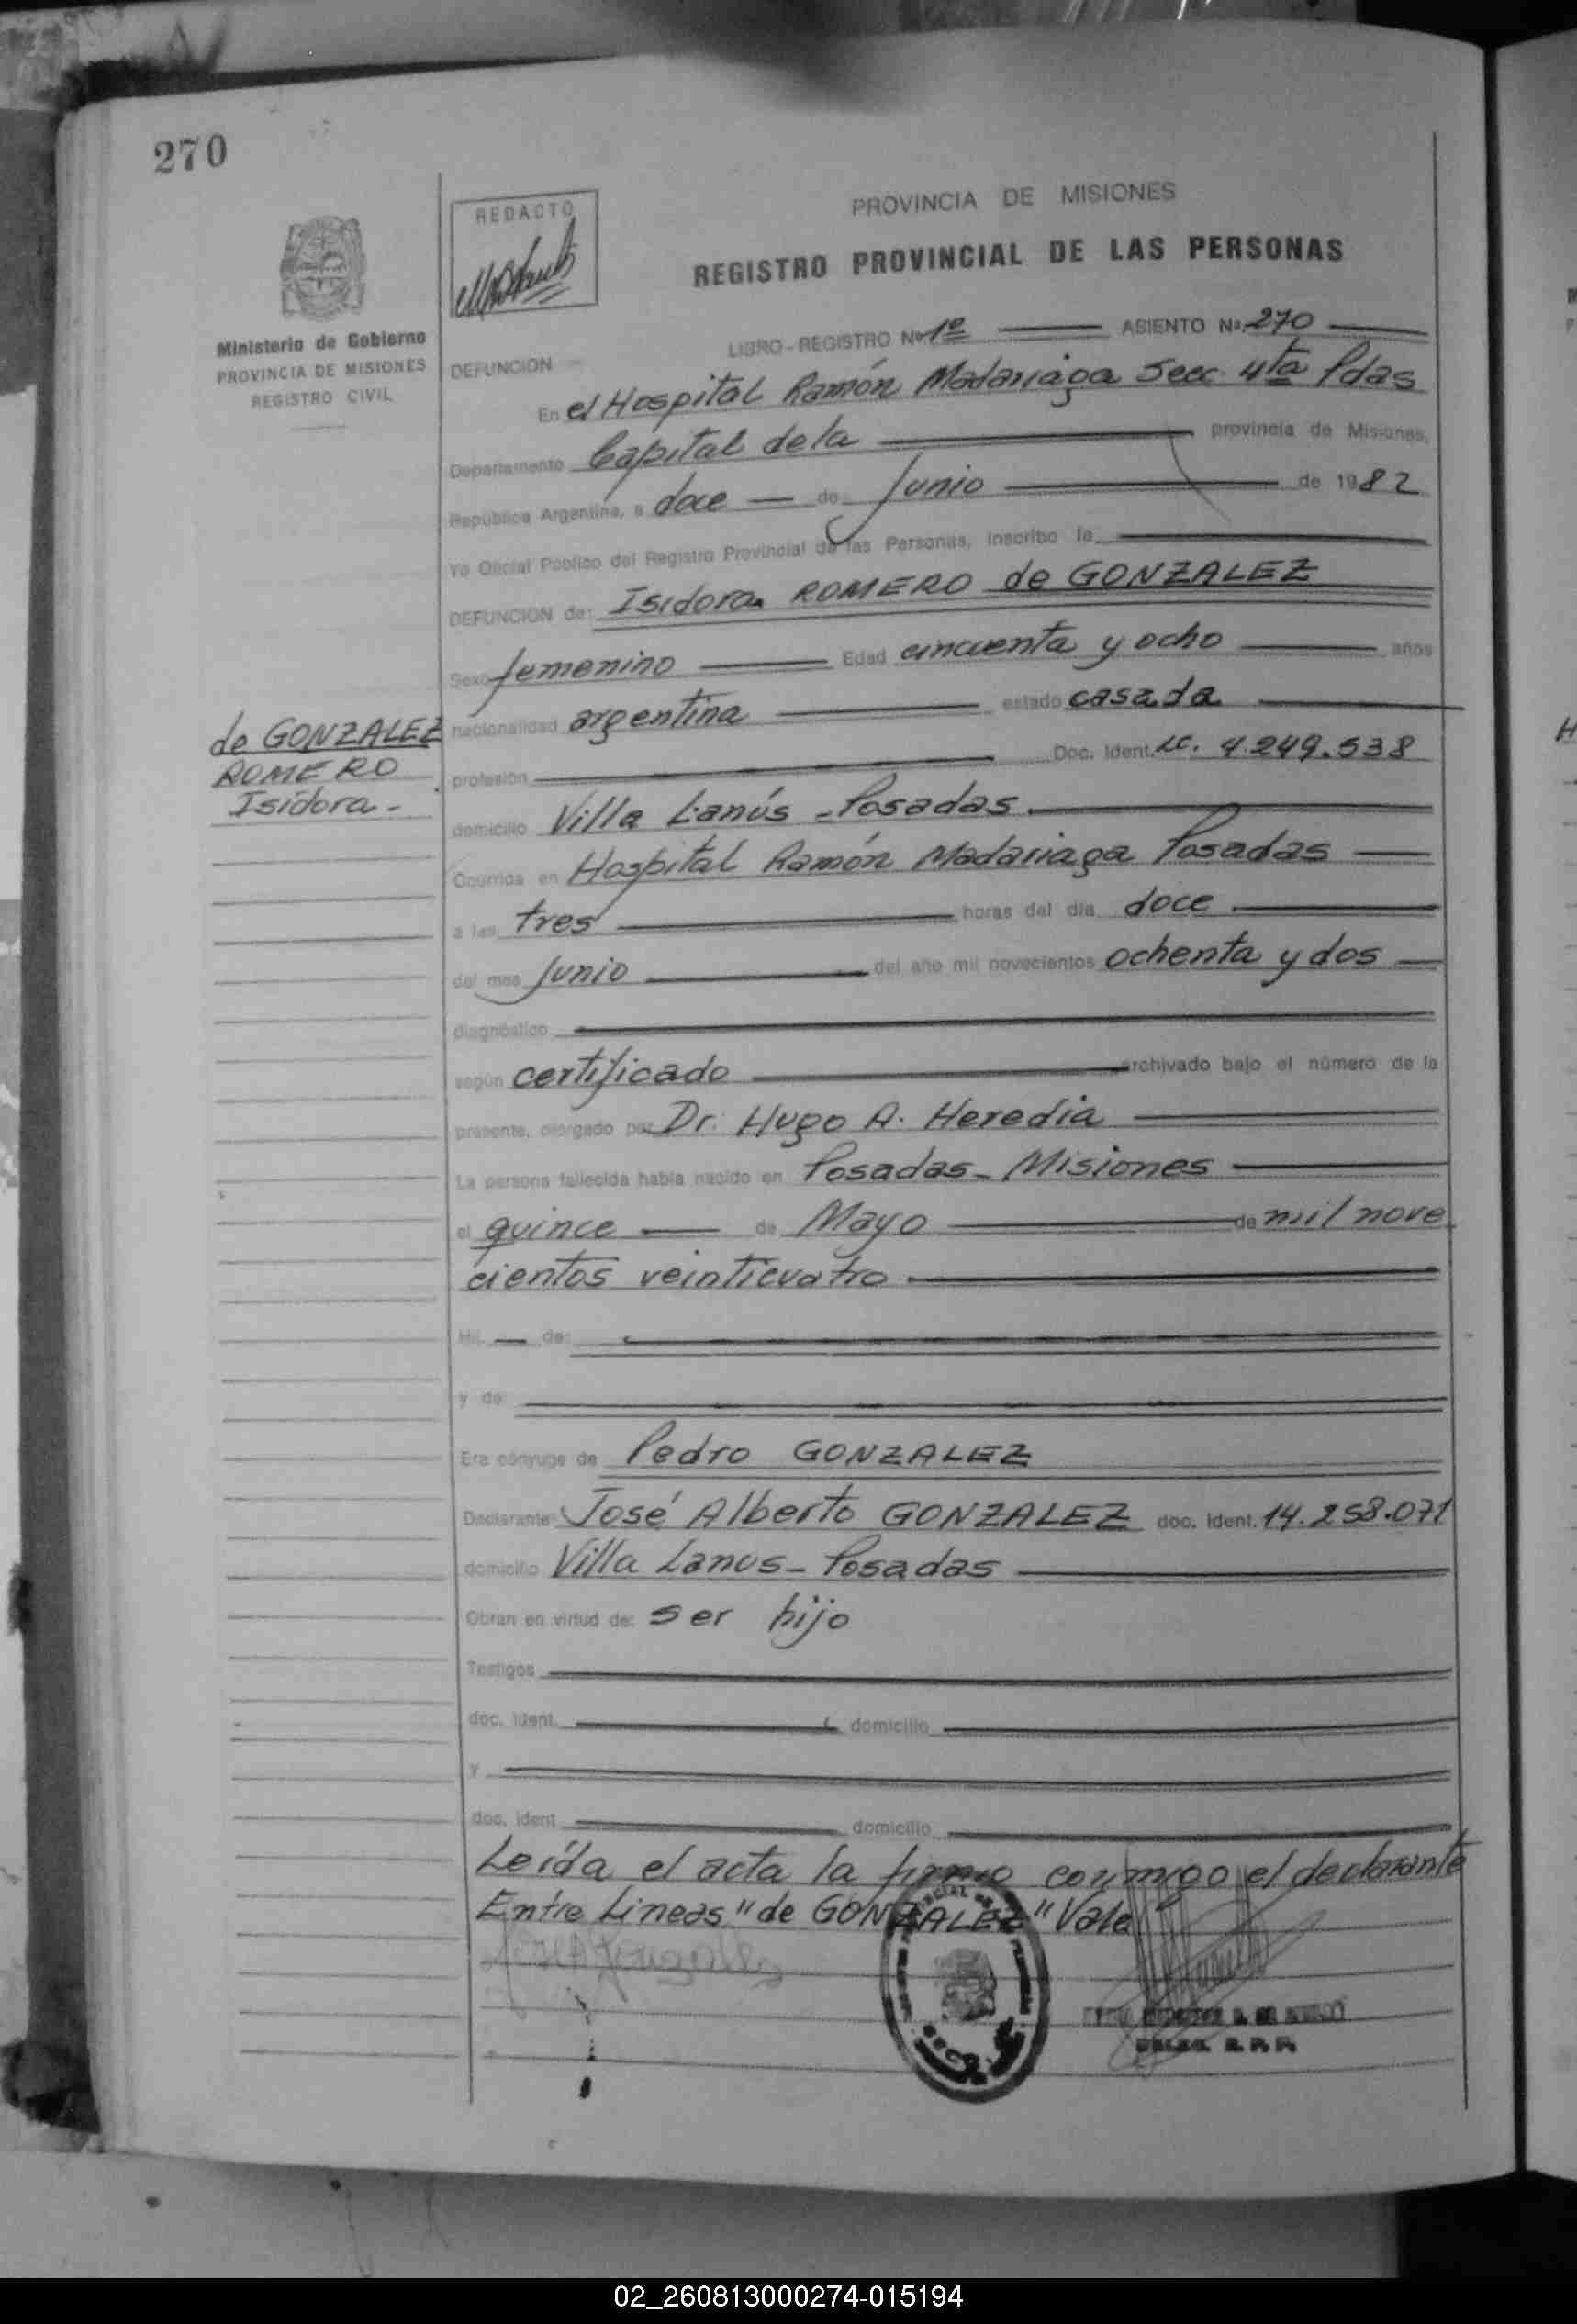 270
REDACTO
PROVINCIA DE MISIONES
REGISTRO PROVINCIAL DE LAS PERSONAS
Ministerio de Gobierno
PROVINCIA DE MISIONES
REGISTRO CIVIL
LIBRO - REGISTRO Nº 1º ASIENTO Nº 270
DEFUNCION
En el Hospital Ramón Madariaga Secc 4ta Pdas
Departamento Capital de la provincia de Misiones,
República Argentina, a doce de Junio de 1982
Yo Oficial Público del Registro Provincial de las Personas, inscribo la
DEFUNCION de: Isidora ROMERO de GONZALEZ
Sexo femenino Edad cincuenta y ocho años
nacionalidad argentina estado casada
de GONZALEZ
ROMERO
Isidora.-
profesión Doc. Ident. LC. 4.249.538
domicilio Villa Lanús - Posadas.
Ocurrida en Hospital Ramón Madariaga Posadas
a las tres horas del día doce
del mes Junio del año mil novecientos ochenta y dos
diagnóstico
según certificado archivado bajo el número de la
presente, otorgado por Dr. Hugo A. Heredia
La persona fallecida había nacido en Posadas - Misiones
el quince de Mayo de mil nove
cientos veinticuatro.
Hij de:
y de
Era cónyuge de Pedro GONZALEZ
Declarante José Alberto GONZALEZ doc. Ident. 14.258.071
domicilio Villa Lanus - Posadas
Obran en virtud de: ser hijo
Testigos
doc. ident. domicilio
y
doc. ident domicilio
Leída el acta la firma conmigo el declarante
Entre Lineas "de GONZALEZ" Vale
02_260813000274-015194